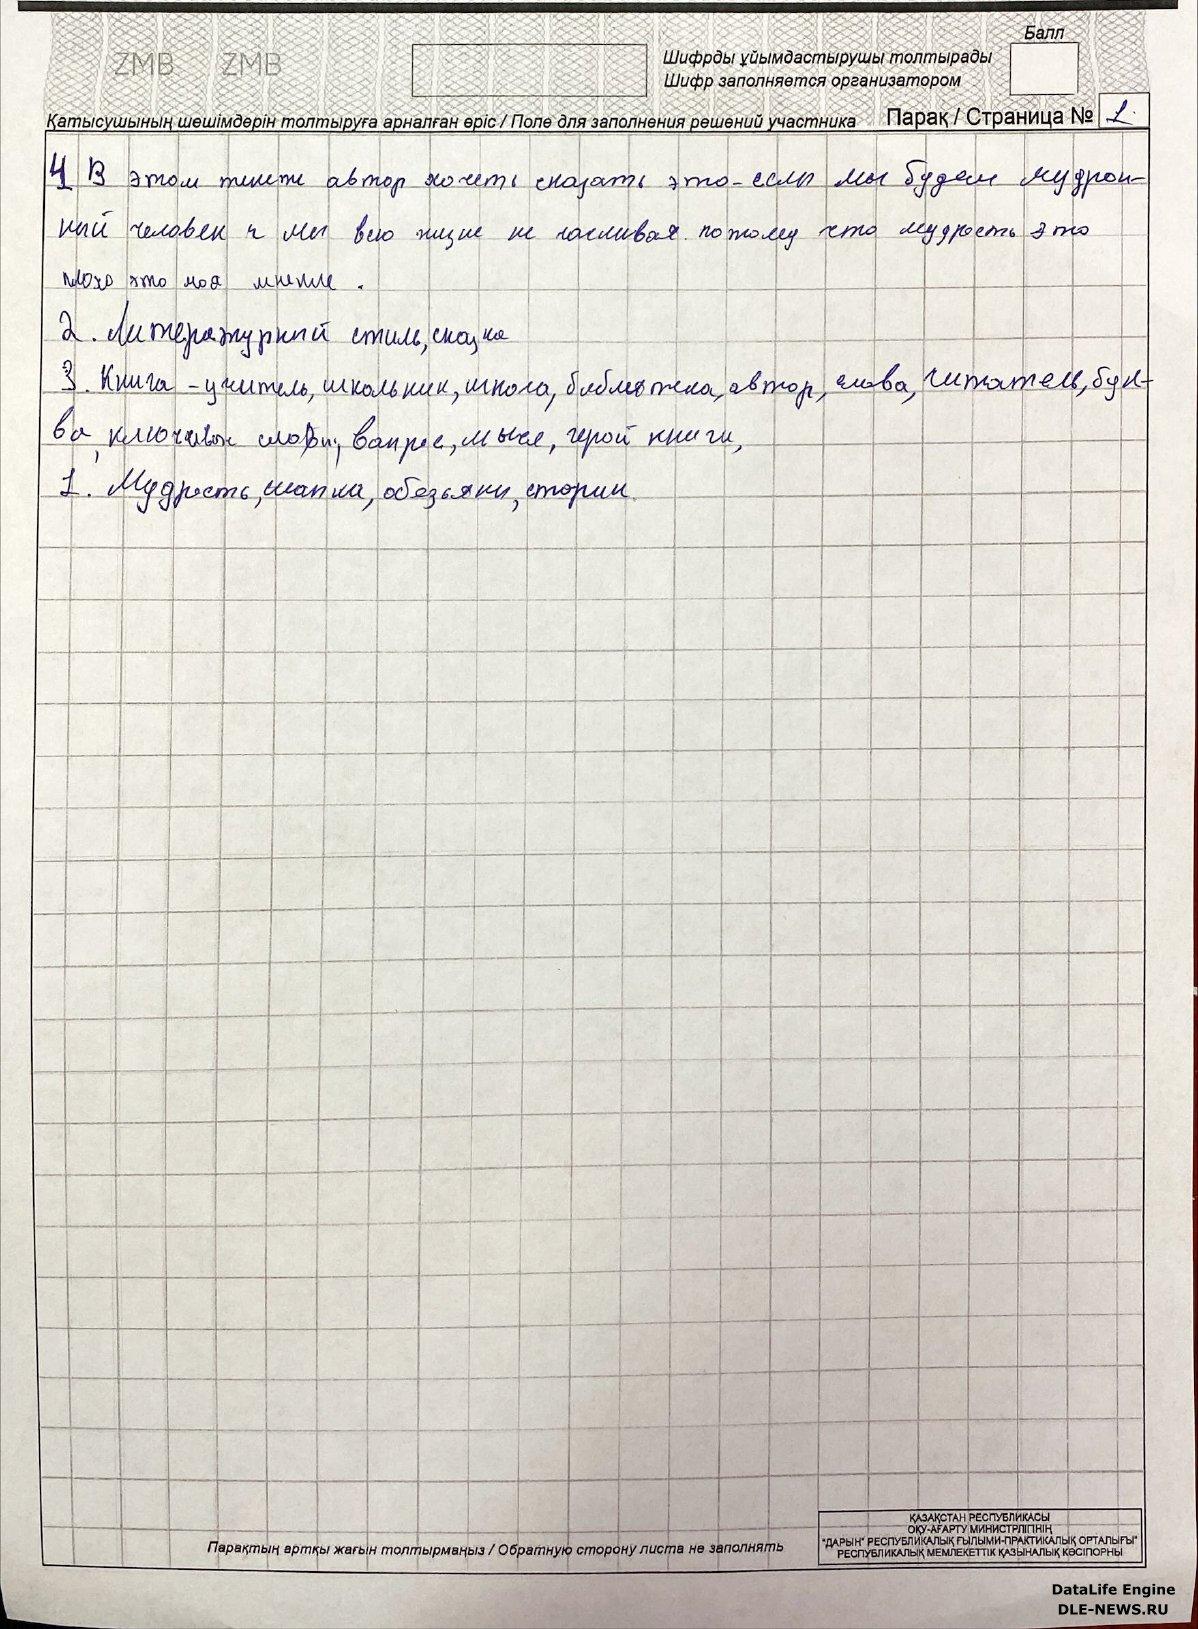 ZMB ZMB
Балл
Шифрды ұйымдастырушы толтырады
Шифр заполняется организатором
Қатысушының шешімдерін толтыруға арналған өріс / Поле для заполнения решений участника Парақ / Страница № 1.
4 В этом тексте автор хочеть сказать это-еслы мы будем мудрон-
ный человек и мы всю жизне не часливая потому что мудрость это
плохо это моя мнение.
2. Литературный стиль, сказка
3. Книга - учитель, школьник, школа, библиотека, автор, глава, читатель, бук-
ва, ключивые слови, вапрос, мысл, герой книги,
1. Мудрость, шапка, обезьяни, старик.
Парақтың артқы жағын толтырмаңыз / Обратную сторону листа не заполнять
ҚАЗАҚСТАН РЕСПУБЛИКАСЫ
ОҚУ-АҒАРТУ МИНИСТРЛІГІНІҢ
"ДАРЫН" РЕСПУБЛИКАЛЫҚ ҒЫЛЫМИ-ПРАКТИКАЛЫҚ ОРТАЛЫҒЫ"
РЕСПУБЛИКАЛЫҚ МЕМЛЕКЕТТІК ҚАЗЫНАЛЫҚ КӘСІПОРНЫ
DataLife Engine
DLE-NEWS.RU